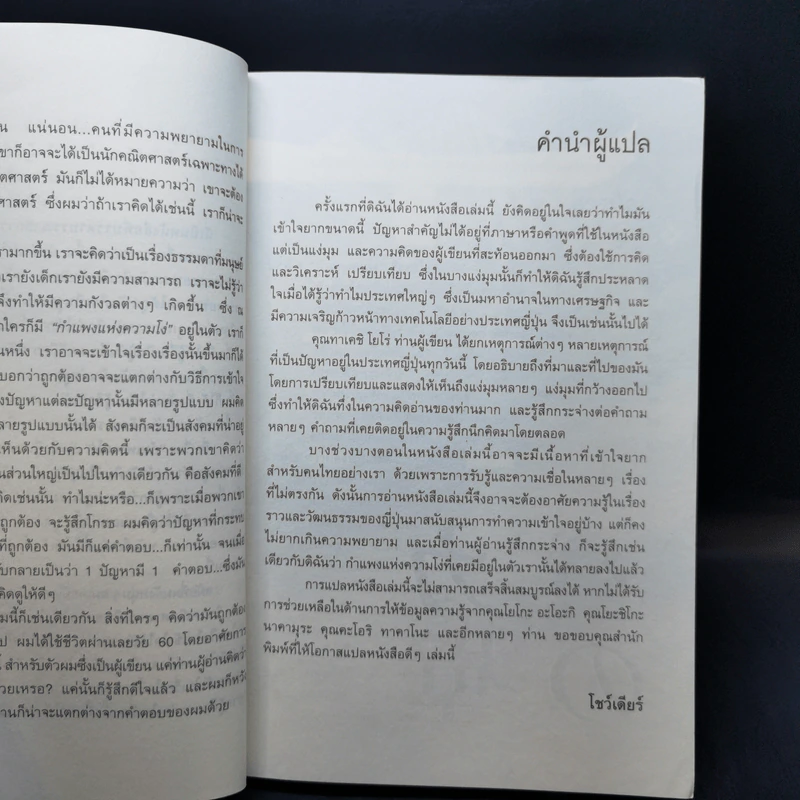 น แน่นอน...คนที่มีความพยายามในการ
ขาก็อาจจะได้เป็นนักคณิตศาสตร์เฉพาะทางได้
ตศาสตร์ มันก็ไม่ได้หมายความว่า เขาจะต้อง
ศาสตร์ ซึ่งผมว่าถ้าเราคิดได้เช่นนี้ เราก็น่าจะ
ามากขึ้น เราจะคิดว่าเป็นเรื่องธรรมดาที่มนุษย์
เรายังเด็กเรายังมีความสามารถ เราจะไม่รู้ว่า
จึงทำให้มีความกังวลต่างๆ เกิดขึ้น ซึ่ง ณ
าใครก็มี "กำแพงแห่งความโง่" อยู่ในตัว เราก็
หนึ่ง เราอาจจะเข้าใจเรื่องเรื่องนั้นขึ้นมาก็ได้
บอกว่าถูกต้องอาจจะแตกต่างกับวิธีการเข้าใจ
งปัญหาแต่ละปัญหานั้นมีหลายรูปแบบ ผมคิด
ลายรูปแบบนั้นได้ สังคมก็จะเป็นสังคมที่น่าอยู่
ห็นด้วยกับความคิดนี้ เพราะพวกเขาคิดว่า
นส่วนใหญ่เป็นไปในทางเดียวกัน คือสังคมที่ดี
เช่นนั้น ทำไมน่ะหรือ...ก็เพราะเมื่อพวกเขา
ถูกต้อง จะรู้สึกโกรธ ผมคิดว่าปัญหาที่กระทบ
ที่ถูกต้อง มันมีก็แค่คำตอบ...ก็เท่านั้น จนเมื่อ
ับกลายเป็นว่า 1 ปัญหามี 1 คำตอบ...ซึ่งมัน
คิดดูให้ดีๆ
มนี้ก็เช่นเดียวกัน สิ่งที่ใครๆ คิดว่ามันถูกต้อง
ป ผมได้ใช้ชีวิตผ่านเลยวัย 60 โดยอาศัยการ
สำหรับตัวผมซึ่งเป็นผู้เขียน แค่ท่านผู้อ่านคิดว่า
วยเหรอ? แค่นั้นก็รู้สึกดีใจแล้ว และผมก็หวัง
านก็น่าจะแตกต่างจากคำตอบของผมด้วย
คำนำผู้แปล
ครั้งแรกที่ดิฉันได้อ่านหนังสือเล่มนี้ ยังคิดอยู่ในใจเลยว่าทำไมมัน
เข้าใจยากขนาดนี้ ปัญหาสำคัญไม่ได้อยู่ที่ภาษาหรือคำพูดที่ใช้ในหนังสือ
แต่เป็นแง่มุม และความคิดของผู้เขียนที่สะท้อนออกมา ซึ่งต้องใช้การคิด
และวิเคราะห์ เปรียบเทียบ ซึ่งในบางแง่มุมนั้นก็ทำให้ดิฉันรู้สึกประหลาด
ใจเมื่อได้รู้ว่าทำไมประเทศใหญ่ๆ ซึ่งเป็นมหาอำนาจในทางเศรษฐกิจ และ
มีความเจริญก้าวหน้าทางเทคโนโลยีอย่างประเทศญี่ปุ่น จึงเป็นเช่นนั้นไปได้
คุณทาเคชิ โยโร่ ท่านผู้เขียน ได้ยกเหตุการณ์ต่างๆ หลายเหตุการณ์
ที่เป็นปัญหาอยู่ในประเทศญี่ปุ่นทุกวันนี้ โดยอธิบายถึงที่มาและที่ไปของมัน
โดยการเปรียบเทียบและแสดงให้เห็นถึงแง่มุมหลายๆ แง่มุมที่กว้างออกไป
ซึ่งทำให้ดิฉันทึ่งในความคิดอ่านของท่านมาก และรู้สึกกระจ่างต่อคำถาม
หลายๆ คำถามที่เคยติดอยู่ในความรู้สึกนึกคิดมาโดยตลอด
บางช่วงบางตอนในหนังสือเล่มนี้อาจจะมีเนื้อหาที่เข้าใจยาก
สำหรับคนไทยอย่างเรา ด้วยเพราะการรับรู้และความเชื่อในหลายๆ เรื่อง
ที่ไม่ตรงกัน ดังนั้นการอ่านหนังสือเล่มนี้จึงอาจจะต้องอาศัยความรู้ในเรื่อง
ราวและวัฒนธรรมของญี่ปุ่นมาสนับสนุนการทำความเข้าใจอยู่บ้าง แต่ก็คง
ไม่ยากเกินความพยายาม และเมื่อท่านผู้อ่านรู้สึกกระจ่าง ก็จะรู้สึกเช่น
เดียวกับดิฉันว่า กำแพงแห่งความโง่ที่เคยมีอยู่ในตัวเรานั้นได้ทลายลงไปแล้ว
การแปลหนังสือเล่มนี้จะไม่สามารถเสร็จสิ้นสมบูรณ์ลงได้ หากไม่ได้รับ
การช่วยเหลือในด้านการให้ข้อมูลความรู้จากคุณโยโกะ อะโอะกิ คุณโยะชิโกะ
นาคามุระ คุณคะโอริ ทาคาโนะ และอีกหลายๆ ท่าน ขอขอบคุณสำนัก
พิมพ์ที่ให้โอกาสแปลหนังสือดีๆ เล่มนี้
โชว์เดียร์